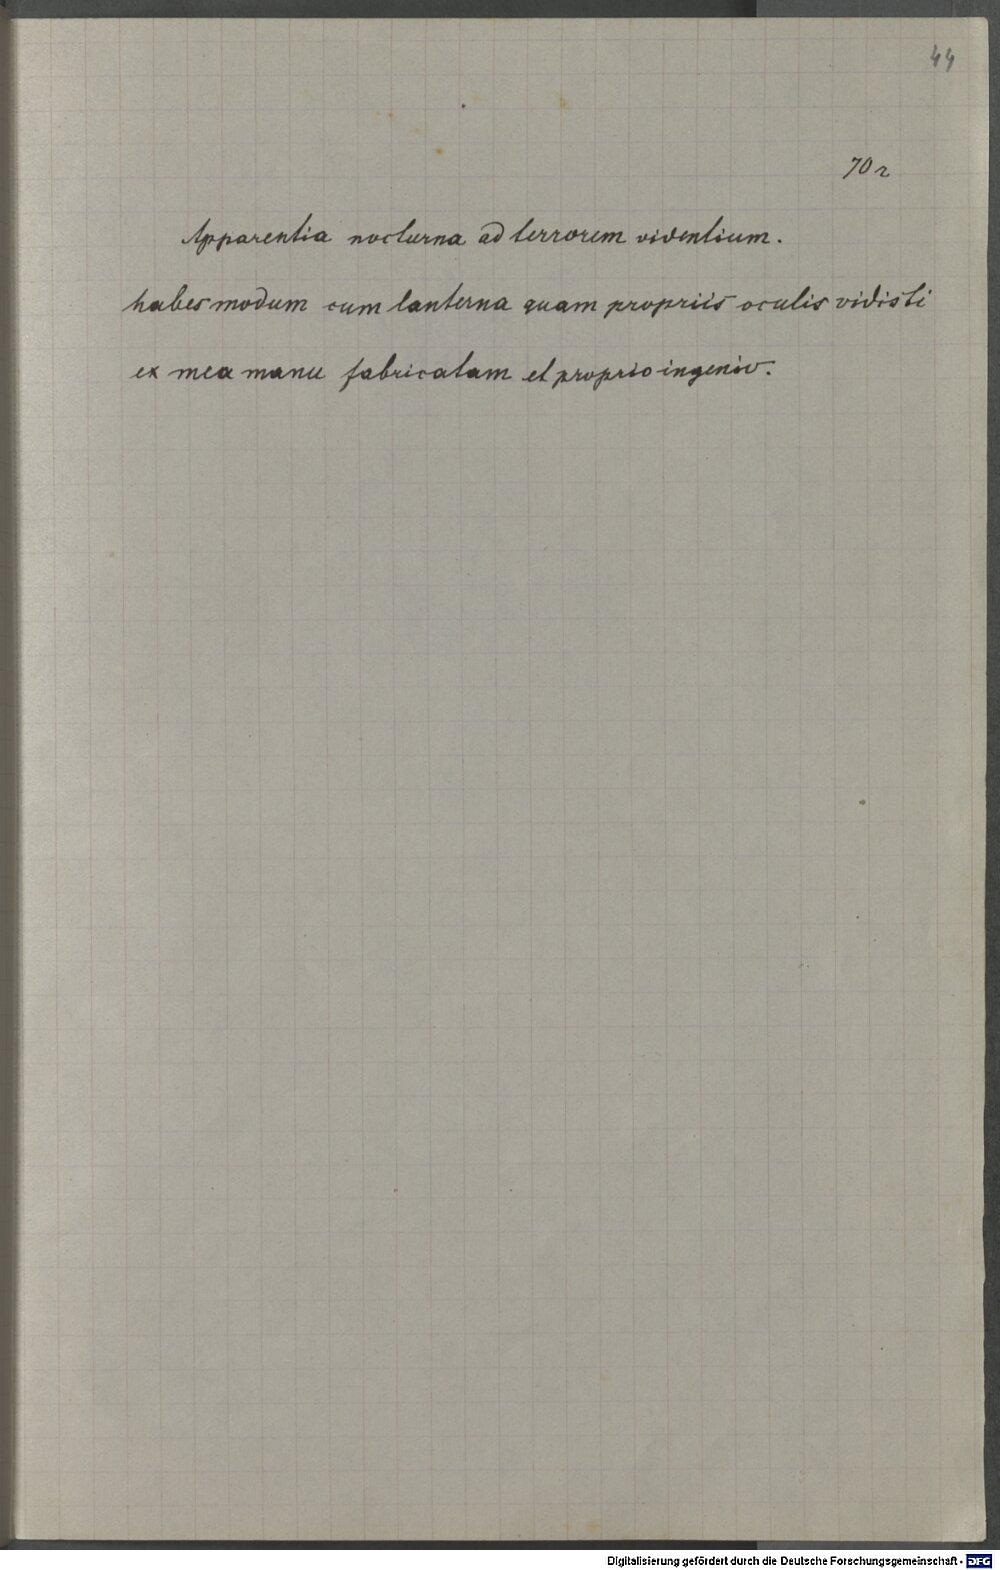 44
70r
Apparentia nocturna ad terrorem videntium.
habes modum cum lanterna quam propriis oculis vidisti
ex mea manu fabricatam et proprio ingenio.
Digitalisierung gefördert durch die Deutsche Forschungsgemeinschaft - DFG